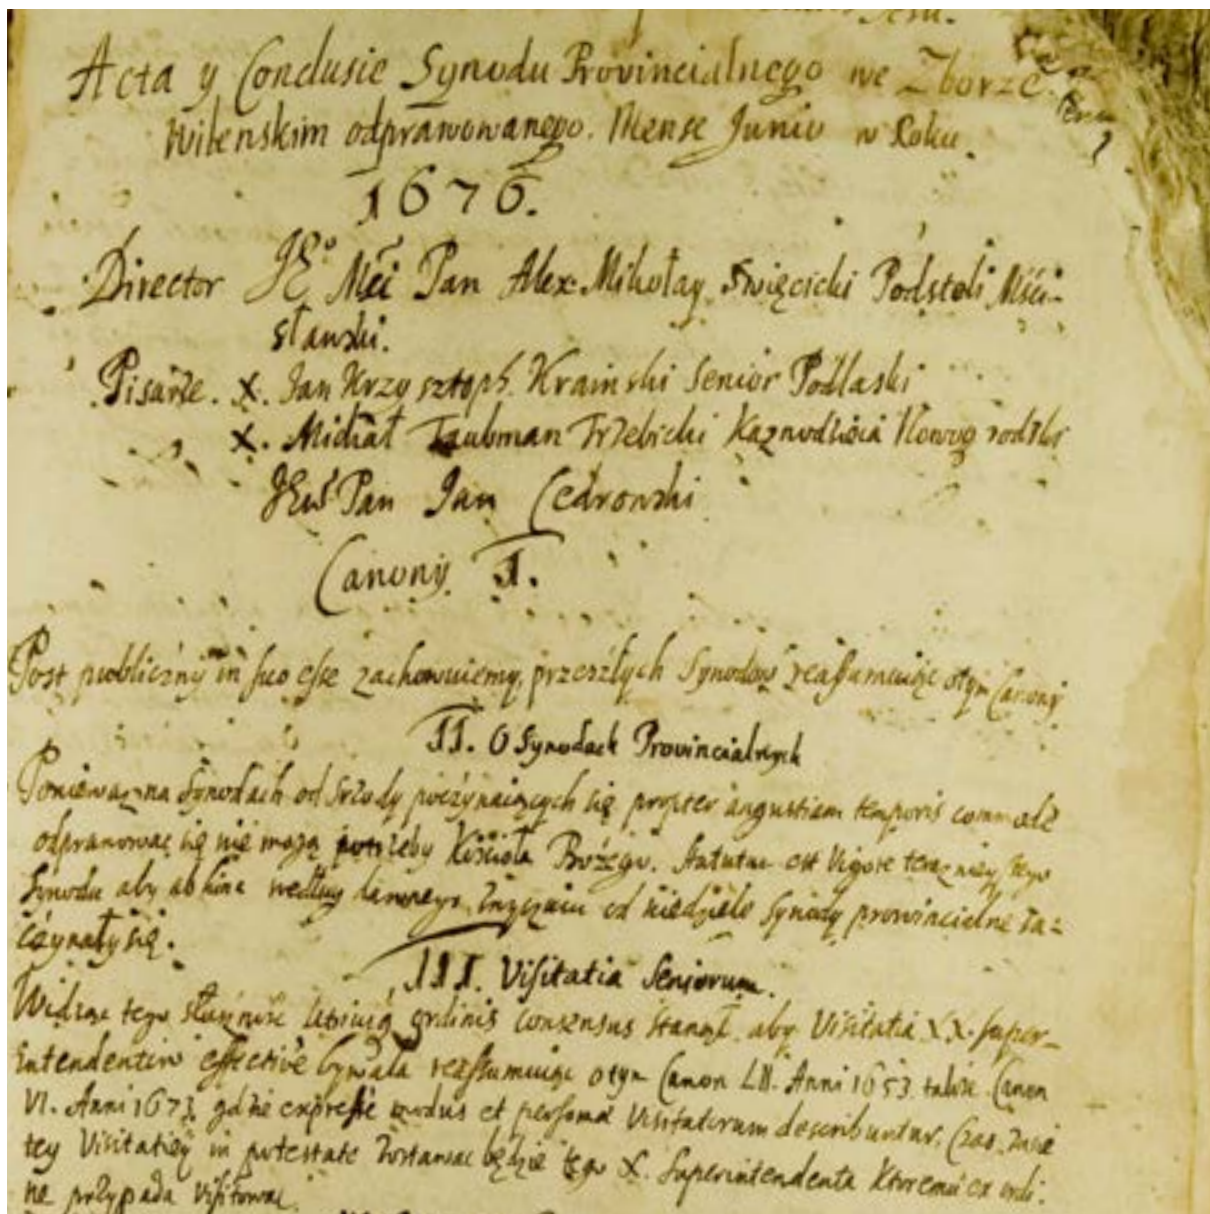 Acta y Conclusie Synodu Prowincialnego we Zborze
Wilenskim odprawowanego. Mense Junio w Roku
1676.
Director JEᵒ Mći Pan Alex. Mikołay Swięcicki Podstoli Mści-
sławski.
Pisarze. X. Jan Krzysztoph. Krainski Senior Podlaski
X. Michał Taubman Trzebicki Kaznodzieia Nowogrodzki
Pan Jan Cedrowski
Canony I.
Post publiczny in suo esse zachowuiemy, przeszłych Synodow reassumuiąc otym Canony
II. O Synodach Provincialnych
Poniewaz na Synodach od Srzody poczynaiących się propter angustiam temporis commode
odprawowac się nie mogą potrzeby Kościoła Bożego. Statutum est Vigore teraznieyszego
Synodu aby ab hinc według dawnego zwyczaiu od niedziele Synody prowincialne za-
czynały się.
III. Visitatia Seniorum.
Widząc tego słuszność ordinis consensus stanął aby Visitatia XX. Super-
intendentow effective bywała reassumuiąc otym Canon LII. Anni 1653 takze Canon
VI. Anni 1673 gdzie expresse modus et personae Visitatorum describuntur. Czas zasię
tey Visitatiey in potestate zostawac będzie tego X. Superintendenta ktoremu ex ordi-
ne przypada visitowac.